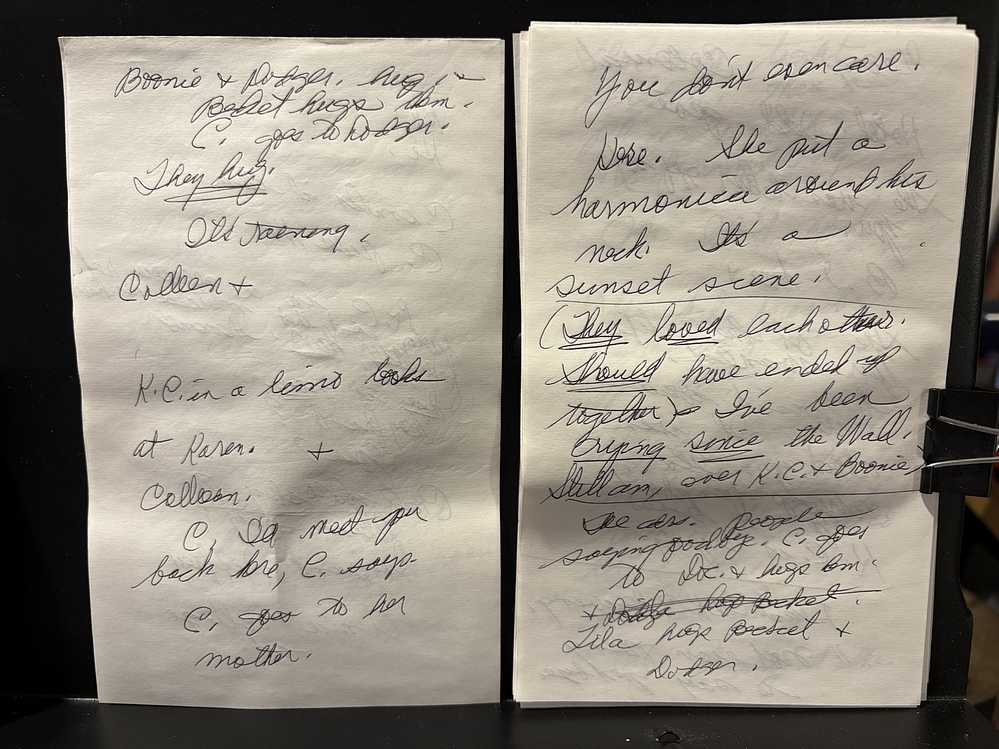 Boonie + Dodger. hug. +
Becket hugs him.
C. goes to Dodger.
They hug.
It's raining.
Colleen +
K.C. in a limo looks
at Karen. +
Colleen.
C. I'd meet you
back here, C. says.
C. goes to her
mother.
You don't even care.
Here. She put a
harmonica around his
neck. It's a
sunset scene.
(They loved each other.
Should have ended up
together) I've been
Crying since the Wall.
Still am, over K.C. + Boonie
The cars. People
saying goodbye. C. goes
to Doc. + hugs him.
+ hugs Becket.
Lila hugs Becket +
Dodger.